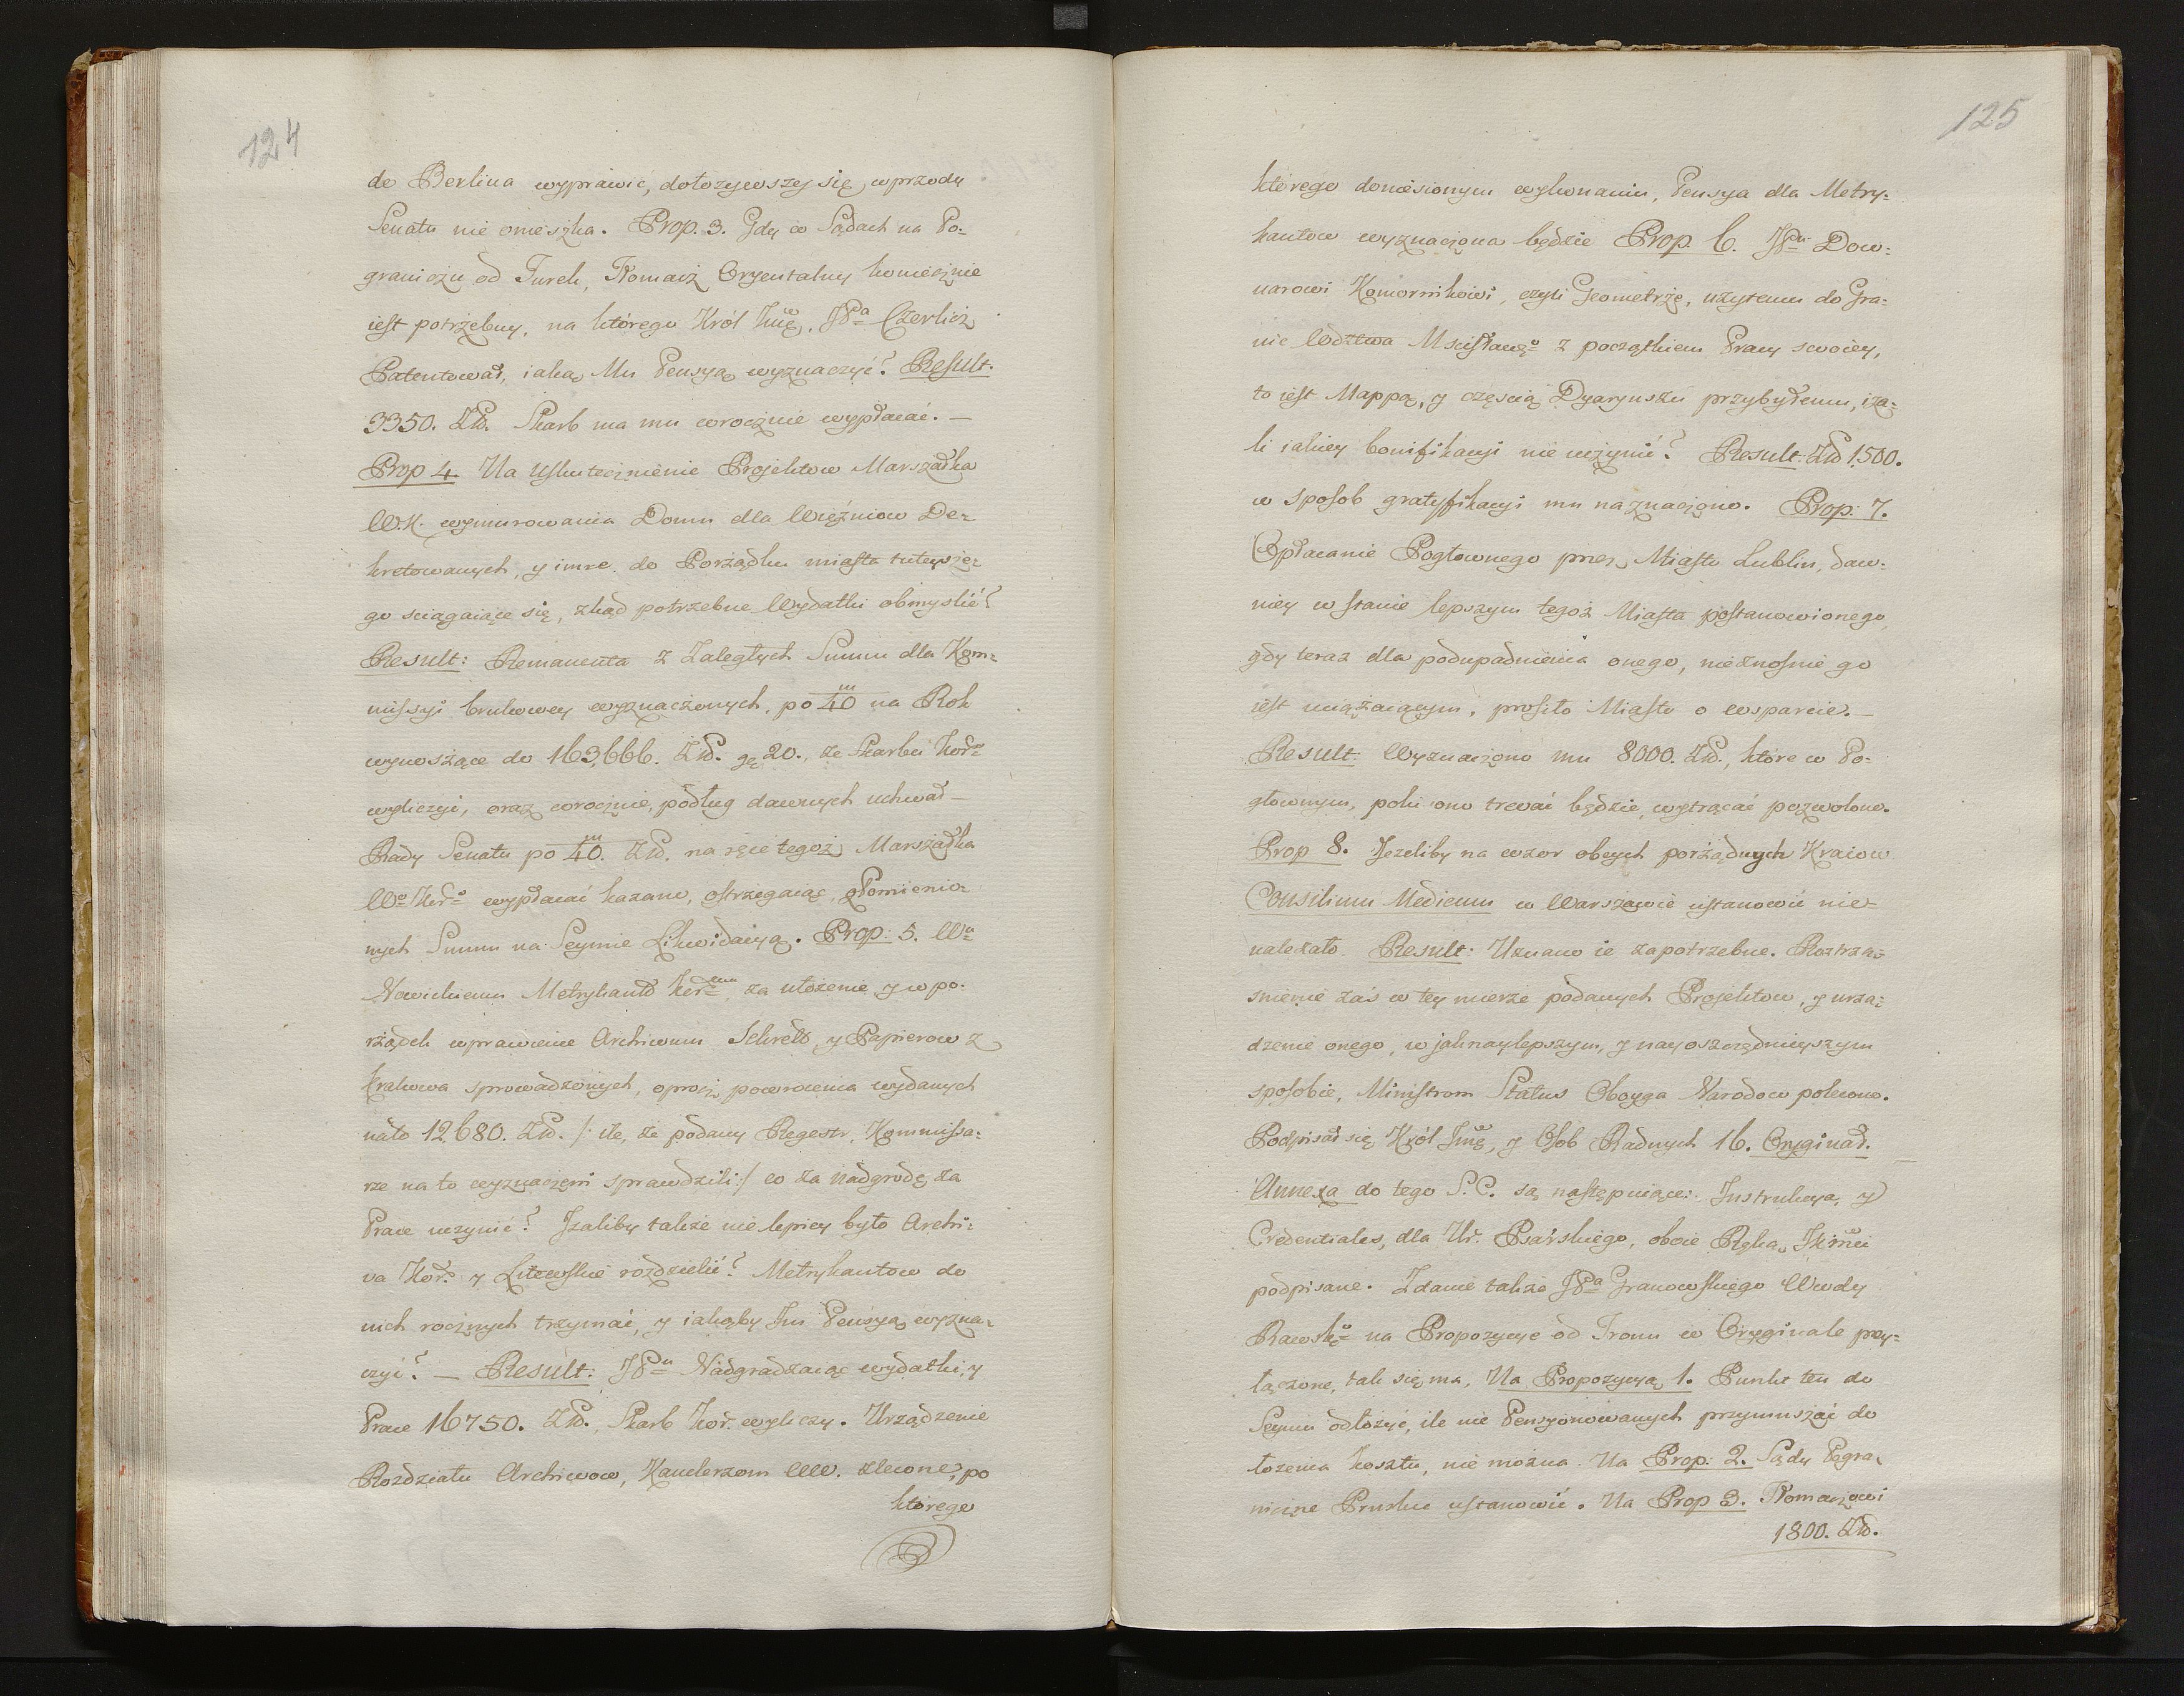 124
de Berlina wyprawić, dołozywszy się wprzody
Senatu nie omeszka. Prop. 3. Gdy w Sądach na Po=
graniczu od Turek, Tłomacz Oryentalny koniecznie
iest potrzebny, na którego Król Jmć, JPa Czerlicz
Patentował, iaką Mu Pensyą wyznaczyć? Result.
3350. Zło. Skarb ma mu corocznie wypłacać. —
Prop 4. Na Uskutecznienie Projektow Marszałka
W.K. wymurowania Domu dla Więźniow De=
kretowanych, y inne do Porządku miasta tuteysze=
go sciągaiące się, zkąd potrzebne Wydatki obmyslić?
Result: Remanenta z Zaległych Summ dla Kom=
missyi brukowey wyznaczonych, po 40 m na Rok
wynoszące do 163,666. Zło. gr 20., ze Skarbu Kor.
wyliczyć, oraz corocznie, podług dawnych uchwał
Rady Senatu po 40 m. Zło. na ręce tegoż Marszałka
Wo Koro wypłacać kazano, ostrzegaiąc, rzomienio=
nych Summ na Seymie Likwidacyą. Prop: 5. Wu
Nowickiemu Metrykantº Kor.emu za ułożenie y w po=
rządek wprawienie Archiwum Sekretº, y Papierow z
Krakowa sprowadzonych, oprócz powrócenia wydanych
nato 12,680. Zło. /: ile, że podany Regestr, Kommissa=
rze na to wyznaczeni sprawdzili :/ co za nadgrodę za
Prace uczynić? Jzaliby także nie lepiey było Archi=
va Kor. y Litewskie rozdzielić? Metrykantow do
nich rocznych trzymać, y iakąby Jm Pensyą wyzna=
czyć? — Result: JPu Nadgradzaiąc wydatki, y
Prace 16750. Zło., Skarb Kor. wyliczy. Urządzenie
Rozdziału Archiwow, Kanclerzom WW. zlecone, po
którego
125
którego doniesionym wykonaniu, Pensya dla Metry=
kantow wyznaczona będzie Prop. 6. JPu Dow=
narowi Komornikowi, czyli Geometrze, użytemu do Gra=
nic Wdztwa Mscisławgo z początkiem Pracy swoiey,
to iest Mappą, y częscią Dyaryuszu przybyłemu, iza=
li iakiey bonifikacyi nie uczynić? Result: Zło 1,500.
w sposob gratyfikacyi mu naznaczono. Prop: 7.
Opłacanie Pogłownego przez Miasto Lublin, daw=
niey w stanie lepszym tegoż Miasta postanowionego,
gdy teraz dla podupadnienia onego, nieznosnie go
iest uciążaiącym, prosiło Miasto o wsparcie. —
Result: Wyznaczono mu 8000. Zło., które w Po=
głownym, poki ono trwać będzie, wytrącać pozwolono.
Prop 8. Jezeliby na wzor obcych porządnych Kraiow
Consilium Medicum w Warszawie ustanowić nie=
należało. Result: Uznano ie zapotrzebne. Roztrzą=
snienie zaś w tey mierze podanych Projektow, y urzą=
dzenie onego, w jaknaylepszym, y nayoszczędnieyszym
sposobie, Ministrom Status Oboyga Narodow polecono.
Podpisał się Król Jmć, y Osob Radnych 16. Oryginał.
Annexa do tego S.C. są następuiące: Jnstrukcya, y
Credentiales, dla Ur. Psarskiego, oboie Ręką JKmci
podpisane. Zdanie także JPa Granowskiego Wwdy
Rawskgo na Propozycye od Tronu w Oryginale przy=
łączone, tak się ma, Na Propozycyą 1. Punkt ten do
Seymu odłożyć, ile nie Pensyonowanych przymuszać do
łożenia kosztu, nie można. Na Prop: 2. Sądy Pogra=
niczne Pruskie ustanowić. Na Prop 3. Tłomaczowi
1800. Zło.